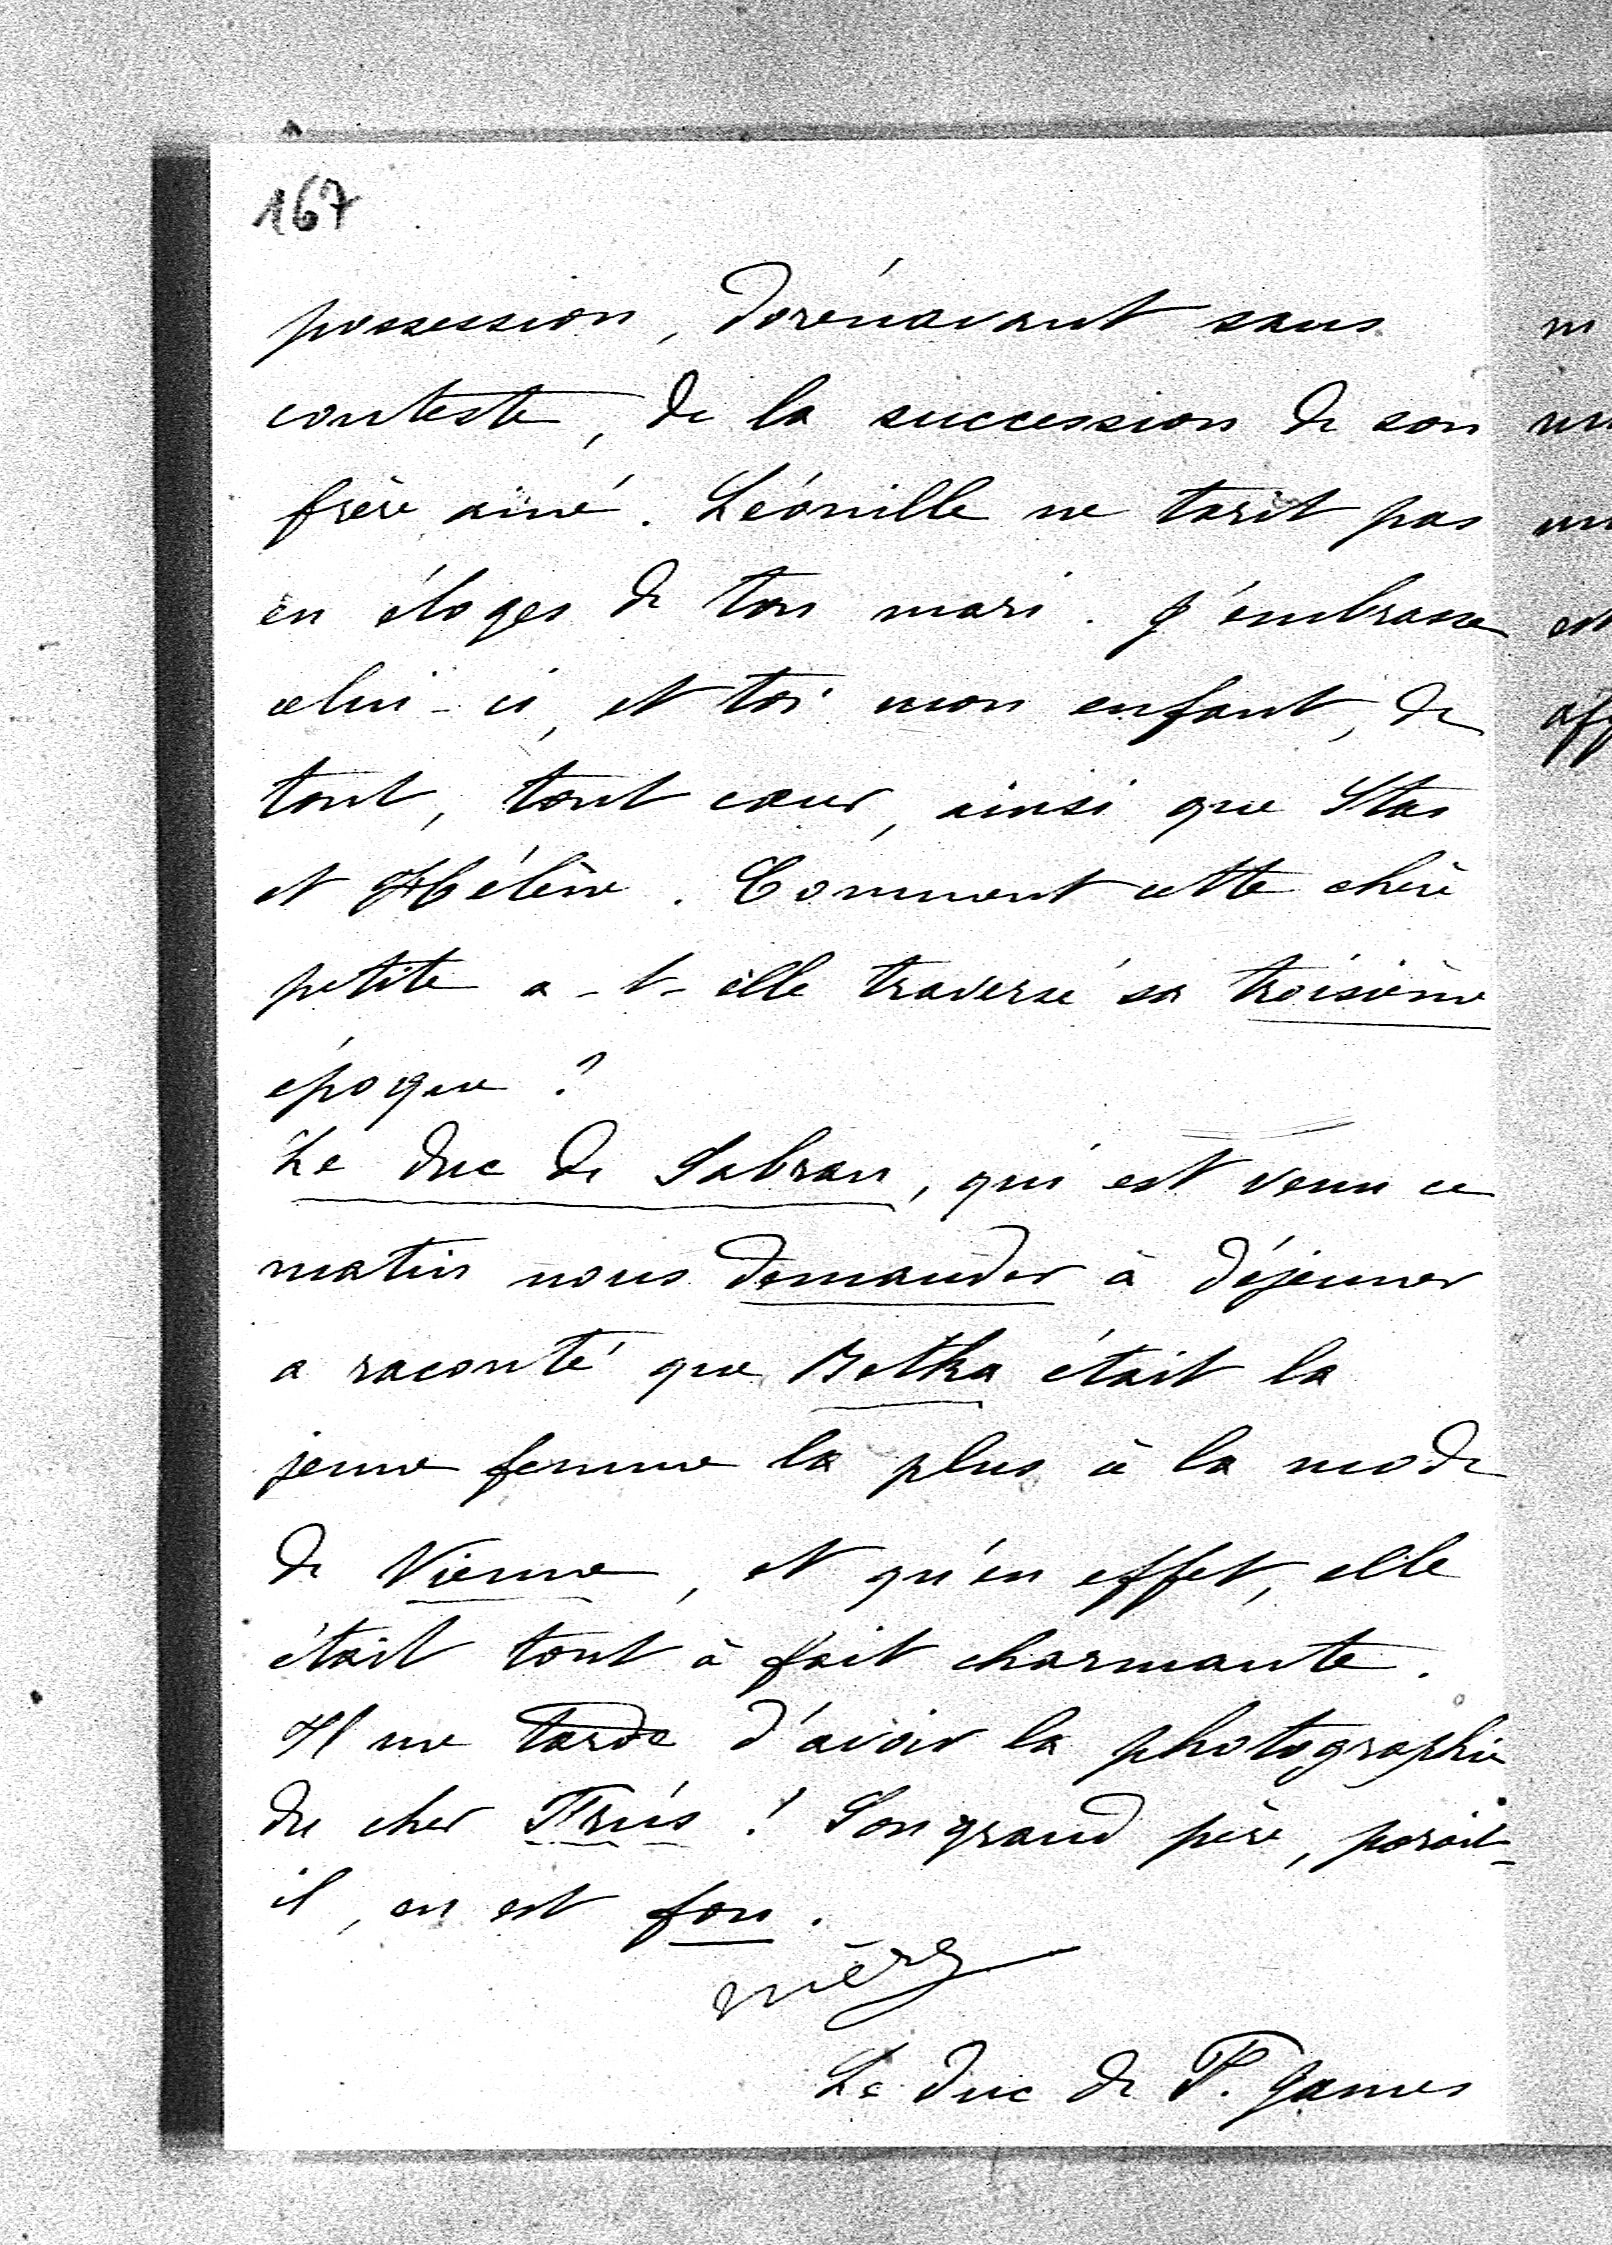 167
possession, dorénavant sans
conteste, de la succession de son
frère aîné. Léonille ne tarit pas
en éloges de ton mari. J'embrasse
celui-ci, et toi mon enfant, de
tout, tout cœur, ainsi que Stas
et Hélène. Comment cette chère
petite a-t-elle traversé sa troisième
époque ?
Le duc de Sabran, qui est venu ce
matin nous demander à déjeuner
a raconté que Betka était la
jeune femme la plus à la mode
de Vienne, et qu'en effet, elle
était tout à fait charmante.
Il me tarde d'avoir la photographie
du cher
! Son grand père, paraît-
il, en est fou.
mère
Le duc de F. James